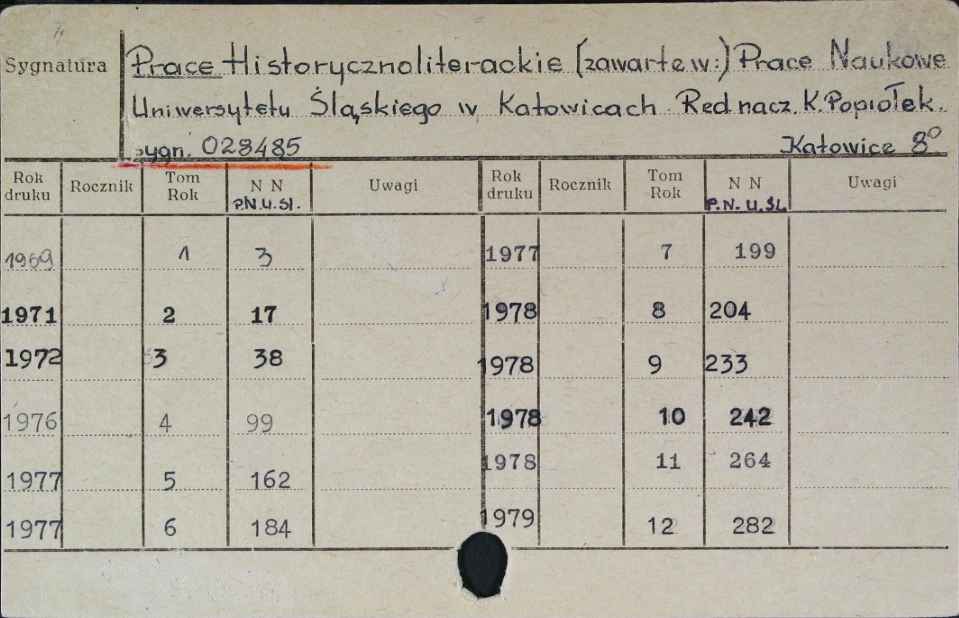 Sygnatura Prace Historycznoliterackie (zawarte w:) Prace Naukowe
Uniwersytetu Śląskiego w Katowicach. Red nacz. K. Popiołek.
sygn. 028485 Katowice 8°
Rok druku Rocznik Tom Rok N N P.N.U.Śl. Uwagi Rok druku Rocznik Tom Rok N N P.N.U.ŚL Uwagi
1969 1 3 1977 7 199
1971 2 17 1978 8 204
1972 3 38 1978 9 233
1976 4 99 1978 10 242
1977 5 162 1978 11 264
1977 6 184 1979 12 282